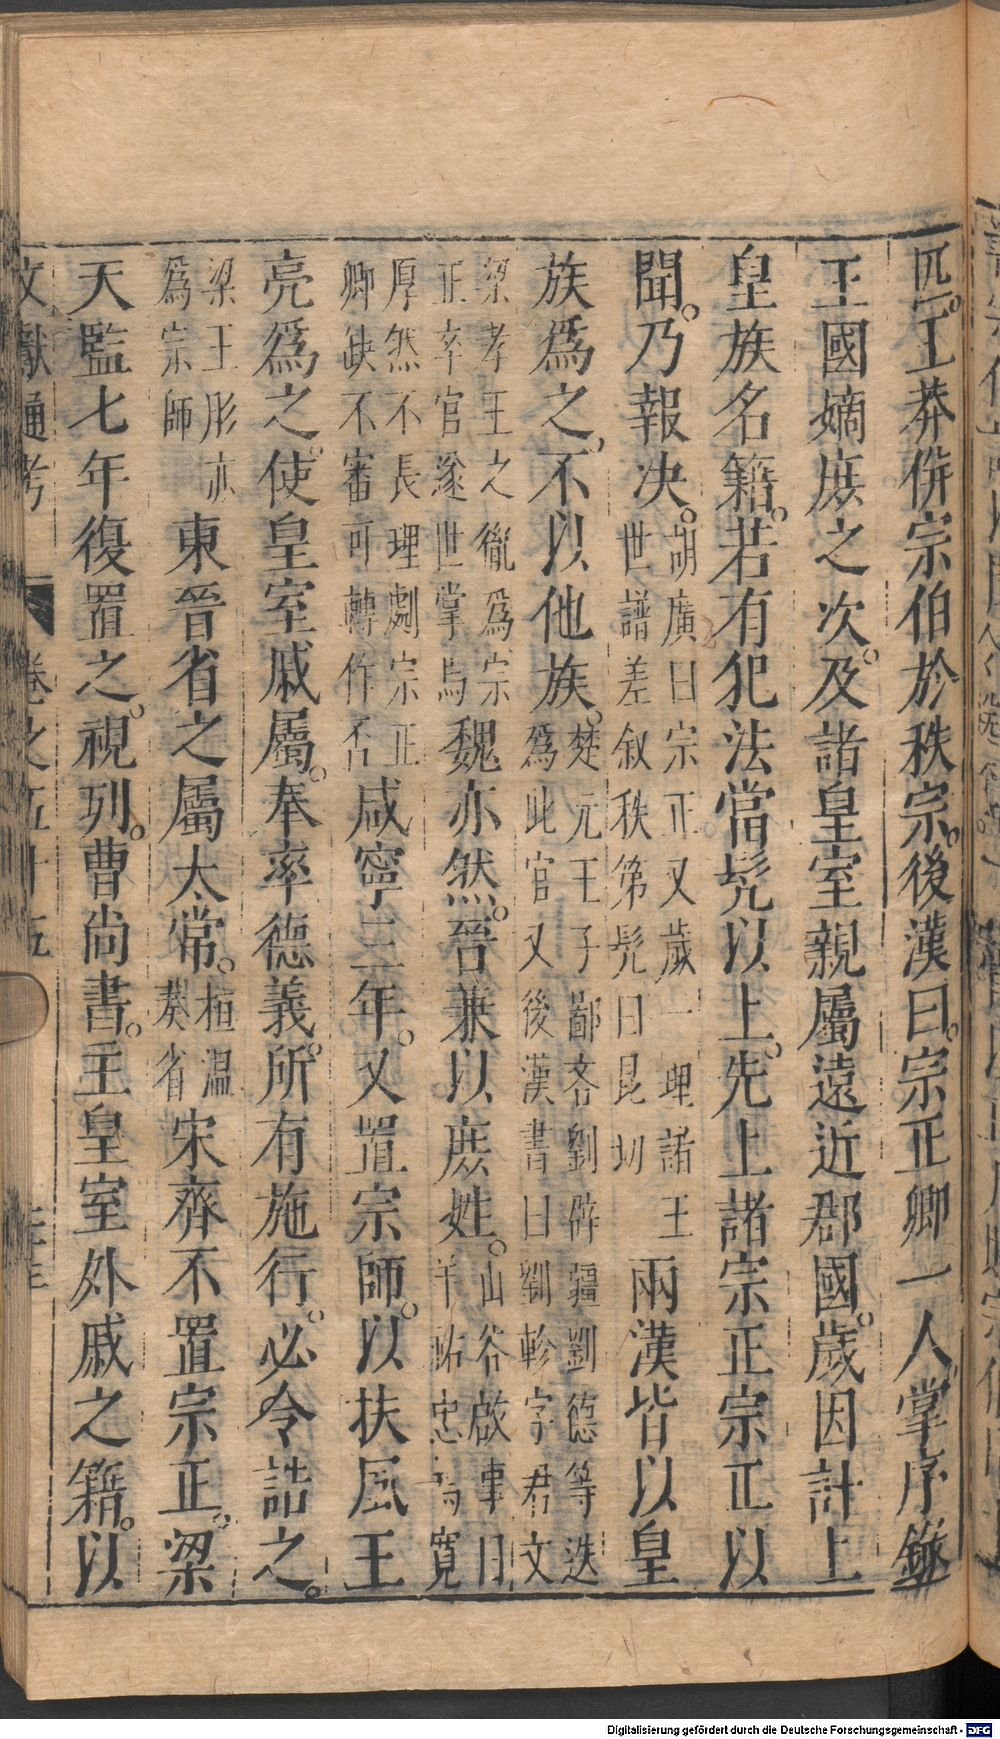 匹。王莽併宗伯於秩宗。後漢曰。宗正卿一人。掌序錄
王國嫡庶之次。及諸皇室親屬遠近郡國。歲因計上
皇族名籍。若有犯法當髡以上。先上諸宗正宗正以
聞。乃報决。胡廣曰宗正又歲一理諸王世譜差叙秩第髡曰昆切兩漢皆以皇
族爲之。不以他族。楚元王子郢客劉辟疆劉德等迭爲此官又後漢書曰劉軫字君文
梁孝王之胤爲宗正卒官遂世掌焉魏亦然。晉兼以庶姓。山谷啟事曰羊祜忠篤寬
厚然不長理劇宗正卿缺不審可轉作否咸寧三年。又置宗師。以扶風王
亮爲之。使皇室戚屬。奉率德義。所有施行。必令詰之。
梁王肜亦爲宗師東晉省之屬太常。桓温奏省宋齊不置宗正。梁
天監七年復置之。視列。曹尚書。主皇室外戚之籍。以
文獻通考 卷之五十五
Digitalisierung gefördert durch die Deutsche Forschungsgemeinschaft - DFG